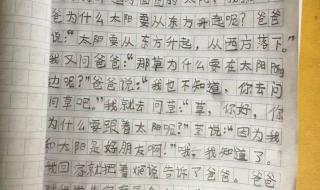 爸为什么太阳要从东方升起呢?爸爸
说:“太阳要从东方升起,从西方落下。”
我又问爸爸:“那草为什么要在太阳的
边呢?”爸爸说:“我也不知道,你去问
问草吧。”我就去问草:“草,你好,你
为什么要跟着太阳呢?”草说:“因为我
和太阳是好朋友啊!”哦,我知道了。
我回家就把着烟说告诉了爸爸,爸爸